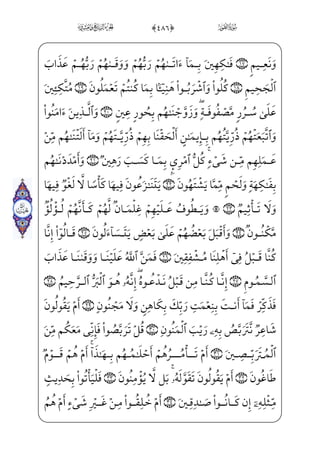 ﴿٤٨٦﴾
وَنَعِيمٍ ١٧ فَـٰكِهِينَ بِمَآ ءَاتَىٰهُمْ رَبُّهُمْ وَوَقَىٰهُمْ رَبُّهُمْ عَذَابَ
ٱلْجَحِيمِ ١٨ كُلُوا۟ وَٱشْرَبُوا۟ هَنِيٓـًٔۢا بِمَا كُنتُمْ تَعْمَلُونَ ١٩ مُتَّكِـِٔينَ
عَلَىٰ سُرُرٍ مَّصْفُوفَةٍ ۖ وَزَوَّجْنَـٰهُم بِحُورٍ عِينٍ ٢٠ وَٱلَّذِينَ ءَامَنُوا۟
وَٱتَّبَعَتْهُمْ ذُرِّيَّتُهُم بِإِيمَـٰنٍ أَلْحَقْنَا بِهِمْ ذُرِّيَّتَهُمْ وَمَآ أَلَتْنَـٰهُم مِّنْ
عَمَلِهِم مِّن شَىْءٍ ۚ كُلُّ ٱمْرِئٍۭ بِمَا كَسَبَ رَهِينٌ ٢١ وَأَمْدَدْنَـٰهُم
بِفَـٰكِهَةٍ وَلَحْمٍ مِّمَّا يَشْتَهُونَ ٢٢ يَتَنَـٰزَعُونَ فِيهَا كَأْسًا لَّا لَغْوٌ فِيهَا
وَلَا تَأْثِيمٌ ٢٣ ۞ وَيَطُوفُ عَلَيْهِمْ غِلْمَانٌ لَّهُمْ كَأَنَّهُمْ لُؤْلُؤٌ
مَّكْنُونٌ ٢٤ وَأَقْبَلَ بَعْضُهُمْ عَلَىٰ بَعْضٍ يَتَسَآءَلُونَ ٢٥ قَالُوٓا۟ إِنَّا
كُنَّا قَبْلُ فِىٓ أَهْلِنَا مُشْفِقِينَ ٢٦ فَمَنَّ ٱللَّهُ عَلَيْنَا وَوَقَىٰنَا عَذَابَ
ٱلسَّمُومِ ٢٧ إِنَّا كُنَّا مِن قَبْلُ نَدْعُوهُ ۖ إِنَّهُۥ هُوَ ٱلْبَرُّ ٱلرَّحِيمُ ٢٨
فَذَكِّرْ فَمَآ أَنتَ بِنِعْمَتِ رَبِّكَ بِكَاهِنٍ وَلَا مَجْنُونٍ ٢٩ أَمْ يَقُولُونَ
شَاعِرٌ نَّتَرَبَّصُ بِهِۦ رَيْبَ ٱلْمَنُونِ ٣٠ قُلْ تَرَبَّصُوا۟ فَإِنِّى مَعَكُم مِّنَ
ٱلْمُتَرَبِّصِينَ ٣١ أَمْ تَأْمُرُهُمْ أَحْلَـٰمُهُم بِهَـٰذَآ ۚ أَمْ هُمْ قَوْمٌ
طَاغُونَ ٣٢ أَمْ يَقُولُونَ تَقَوَّلَهُۥ ۚ بَل لَّا يُؤْمِنُونَ ٣٣ فَلْيَأْتُوا۟ بِحَدِيثٍ
مِّثْلِهِۦٓ إِن كَانُوا۟ صَـٰدِقِينَ ٣٤ أَمْ خُلِقُوا۟ مِنْ غَيْرِ شَىْءٍ أَمْ هُمُ